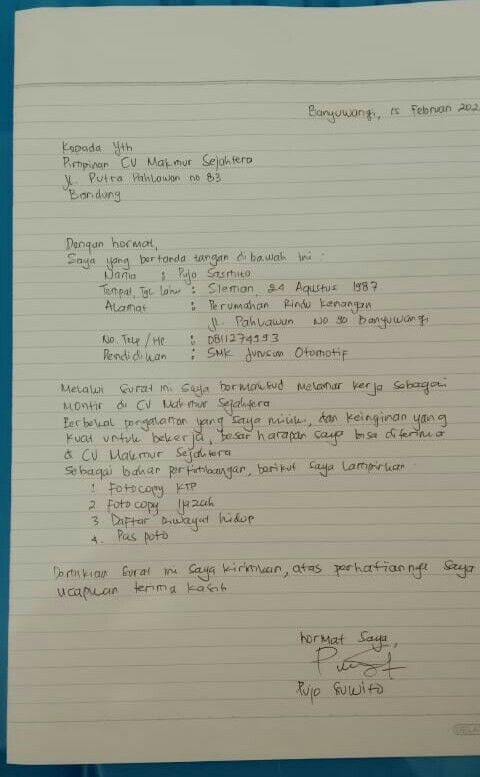 Banyuwangi, 15 Februari 202
Kepada Yth
Pimpinan CV Makmur Sejahtera
Jl. Putra Pahlawan no 83
Bandung
Dengan hormat,
Saya yang bertanda tangan dibawah ini :
Nama : Pujo Sasmito
Tempat, Tgl Lahir : Sleman, 24 Agustus 1987
Alamat : Perumahan Rindu Kenangan
Jl. Pahlawan No 90 Banyuwangi
No. Telp / HP : 0811274993
Pendidikan : SMK Jurusan Otomotif
Melalui Surat ini Saya bermaksud melamar kerja sebagai
montir di CV Makmur Sejahtera
Berbekal pengalaman yang saya miliki, dan keinginan yang
kuat untuk bekerja, besar harapan saya bisa diterima
di CV Makmur Sejahtera
Sebagai bahan pertimbangan, berikut saya lampirkan
1 Fotocopy KTP
2 Fotocopy Ijazah
3 Daftar Riwayat hidup
4. Pas poto
Demikian Surat ini Saya kirimkan, atas perhatiannya Saya
ucapkan terima kasih
hormat Saya,
Pujo Suwito